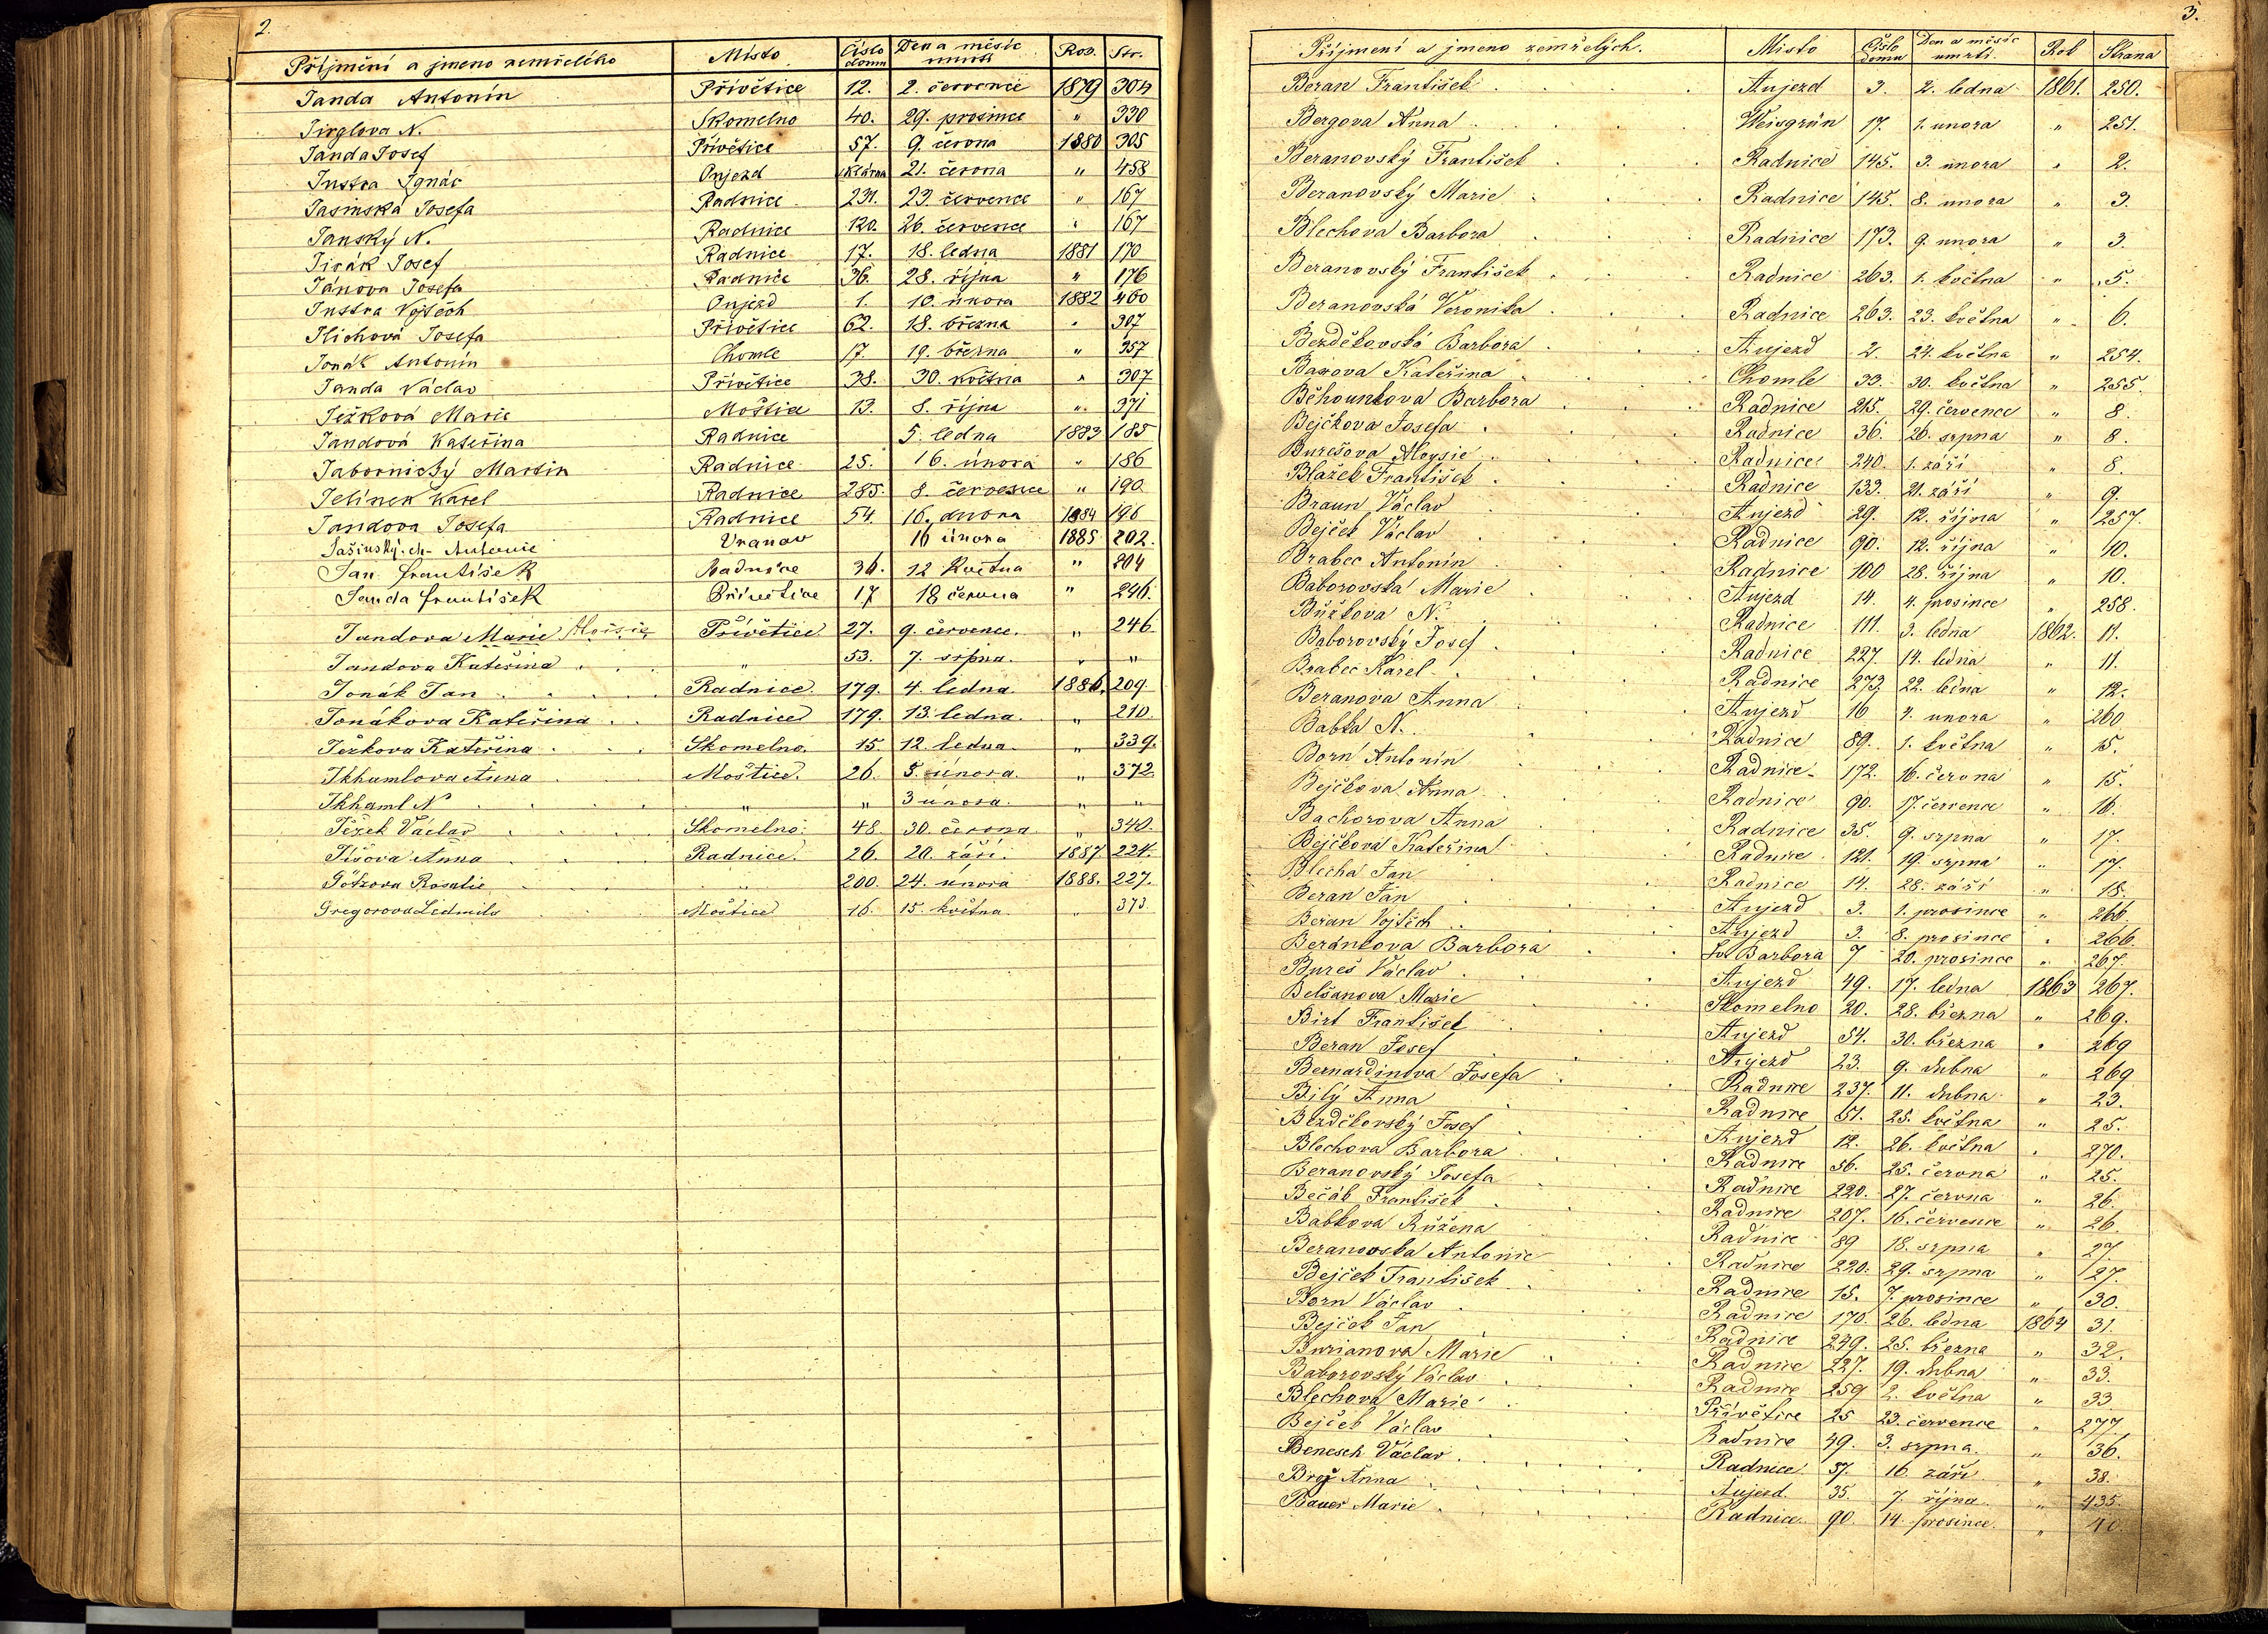 2.
Příjmění a jmeno zemřelého Místo Číslo domu Den a měsíc úmrtí Rod. Str.
Janda Antonín Přívětice 12. 2. července 1879 304
Jirglova N. Skomelno 40. 29. prosince " 330
Janda Josef Přívětice 57. 9. června 1880 305
Justra Ignác Oujezd 21. června " 458
Jasinská Josefa Radnice 231. 23. července " 167
Janský N. Radnice 120. 26. července " 167
Jirák Josef Radnice 17. 18. ledna 1881 170
Jánova Josefa Radnice 36. 28. října " 176
Justra Vojtěch Oujezd 1. 10. února 1882 460
Jlichová Josefa Přívětice 62. 18. března " 307
Jonák Antonín Chomle 17. 19. března " 357
Janda Václav Přívětice 38. 30. května " 307
Ježková Marie Moštice 13. 8. října " 371
Jandová Kateřina Radnice 5. ledna 1883 185
Jabornický Martin Radnice 25. 16. února " 186
Jelínek Karel Radnice 285. 8. července " 190
Jandova Josefa Radnice 54. 16. února 1884 196
Jašinský Antonie Vranov 16 února 1885 202.
Jan František Radnice 36. 12 Května " 204
Janda František Přívětice 17 18 června " 246.
Jandova Marie Aloisie Přívětice 27. 9. července. " 246.
Jandova Kateřina . " 53. 7. srpna. " "
Jonák Jan Radnice. 179. 4. ledna. 1886. 209
Jonákova Kateřina Radnice 179. 13. ledna. " 210.
Ježkova Kateřina Skomelno. 15. 12. ledna. " 339.
Jkhumlova Anna Moštice. 26. 5. února. " 372
Jkhaml N " " 3 února. " "
Ježek Václav Skomelno. 48. 30. června " 340.
Jíšova Anna Radnice. 26. 20. září. 1887 224.
Götzova Rosalie " 200. 24. února 1888. 227.
Gregorova Ledmila Moštice 16. 15. května. " 373.
3.
Příjmení a jmeno zemřelých. Místo Číslo domu Den a měsíc umrtí. Rok Strana
Beran František Aujezd 3. 2. ledna 1861. 250.
Bergova Anna Weisgrün 17. 1. unora " 251.
Beranovský František Radnice 145. 3. unora " 2.
Beranovský Marie Radnice 145. 8. unora " 3.
Blechova Barbora Radnice 173. 9. unora " 3.
Beranovský František Radnice 263. 1. května " 5.
Beranovská Veronika Radnice 263. 23. května " 6.
Bezděkovská Barbora Aujezd 2. 24. května " 254.
Baxova Kateřina Chomle 33. 30. května " 255.
Běhounkova Barbora Radnice 215. 29. července " 8.
Bejčkova Josefa Radnice 36. 26. srpna " 8.
Burešova Aloysie Radnice 240. 1. září " 8.
Blažek František Radnice 133. 21. září " 9.
Braun Václav Aujezd 29. 12. října " 257.
Bejček Václav Radnice 90. 12. října " 10.
Brabec Antonín Radnice 100 28. října " 10.
Baborovská Marie Aujezd 14. 4. prosince " 258.
Bůžkova N. Radnice 111. 3. ledna 1862. 11.
Baborovský Josef Radnice 227. 14. ledna " 11.
Brabec Karel Radnice 273. 22. ledna " 12.
Beranova Anna Aujezd 16 4. unora " 260
Babka N. Radnice 89. 1. května " 15.
Born Antonín Radnice 172. 16. června " 15.
Bejčkova Anna Radnice 90. 17. července " 16.
Bachorova Anna Radnice 35. 9. srpna " 17.
Bejčkova Kateřina Radnice 121. 19. srpna " 17.
Blecha Jan Radnice 14. 28. září " 18.
Beran Jan Aujezd 3. 1. prosince " 266.
Beran Vojtěch Aujezd 3. 8. prosince " 266.
Beránkova Barbora Sv. Barbora 7 20. prosince " 267.
Bureš Václav Aujezd 49. 17. ledna 1863 267.
Belšanova Marie Skomelno 20. 28. března " 269.
Birt František Aujezd 54. 30. března " 269
Beran Josef Aujezd 23. 9. dubna " 269
Bernardinova Josefa Radnice 237. 11. dubna " 23.
Bílý Anna Radnice 51. 25. května " 25.
Bezděkovský Josef Aujezd 12. 26. května " 270.
Blechova Barbora Radnice 56. 25. června " 25.
Beranovský Josefa Radnice 220. 27. června " 26.
Bečák František Radnice 207. 16. července " 26.
Babkova Růžena Radnice 89 18. srpna " 27.
Beranovská Antonie Radnice 220. 29. srpna " 27.
Bejček František Radnice 15. 7. prosince " 30.
Born Václav Radnice 170 26. ledna 1864 31.
Bejček Jan Radnice 249. 25. března " 32.
Burianova Marie Radnice 227. 19. dubna " 33.
Baborovský Václav Radnice 259 2. května " 33
Blechova Marie Přívětice 25 23. července " 277.
Bejček Václav Radnice 49. 3. srpna. " 36.
Benesch Václav Radnice 37. 16 září " 38.
Brož Anna Aujezd 35. 7. října " 435.
Bauer Marie Radnice 90. 14. prosince. " 40